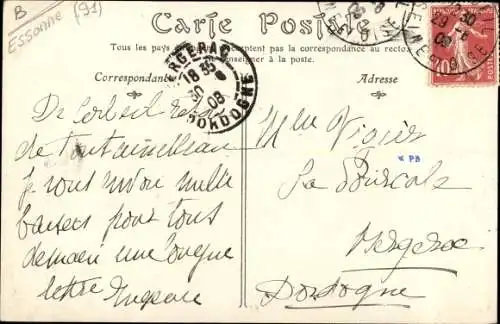 B
Essonne (91)
Carte Postale
Tous les pays acceptent pas la correspondance au recto
se renseigner à la poste.
Correspondance
Adresse
BERGERAC
18 35
30
08
DORDOGNE
29 -6
08
10
De Corbeil
de Fontainebleau
Je vous envoie mille
baisers pour tous
demain une longue
lettre
Mme Vigier
La
Bergerac
Dordogne
PB